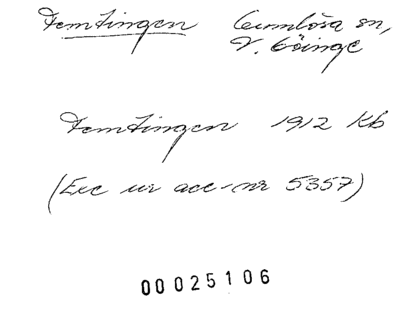 Femtingen Gumlösa sn,
V. Göinge
Femtingen 1912 Kb
(Exc ur acc-nr 5357)
00025106